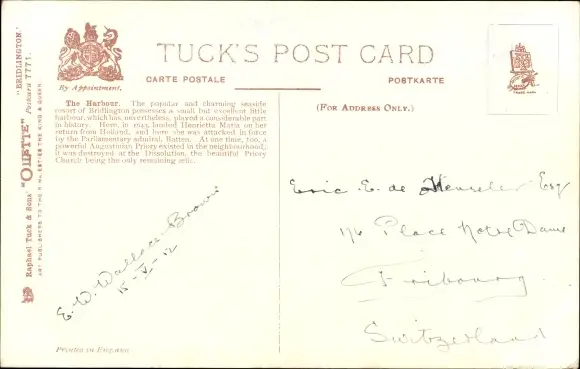 TUCK'S POST CARD
By Appointment.
CARTE POSTALE
POSTKARTE
(FOR ADDRESS ONLY.)
The Harbour. The popular and charming seaside
resort of Bridlington possesses a small but excellent little
harbour, which has, nevertheless, played a considerable part
in history. Here, in 1643, landed Henrietta Maria on her
return from Holland, and here she was attacked in force
by the Parliamentary admiral, Batten. At one time, too, a
powerful Augustinian Priory existed in the neighbourhood;
it was destroyed at the Dissolution, the beautiful Priory
Church being the only remaining relic.
E. W. Wallace Brown
15-V-12
Eric E. de Esq
Place Notre Dame
Fribourg
Switzerland
Printed in England
Raphael Tuck & Sons' "OILETTE" Postcard 7771. "BRIDLINGTON."
ART PUBLISHERS TO THEIR MAJESTIES THE KING & QUEEN.
TRADE MARK